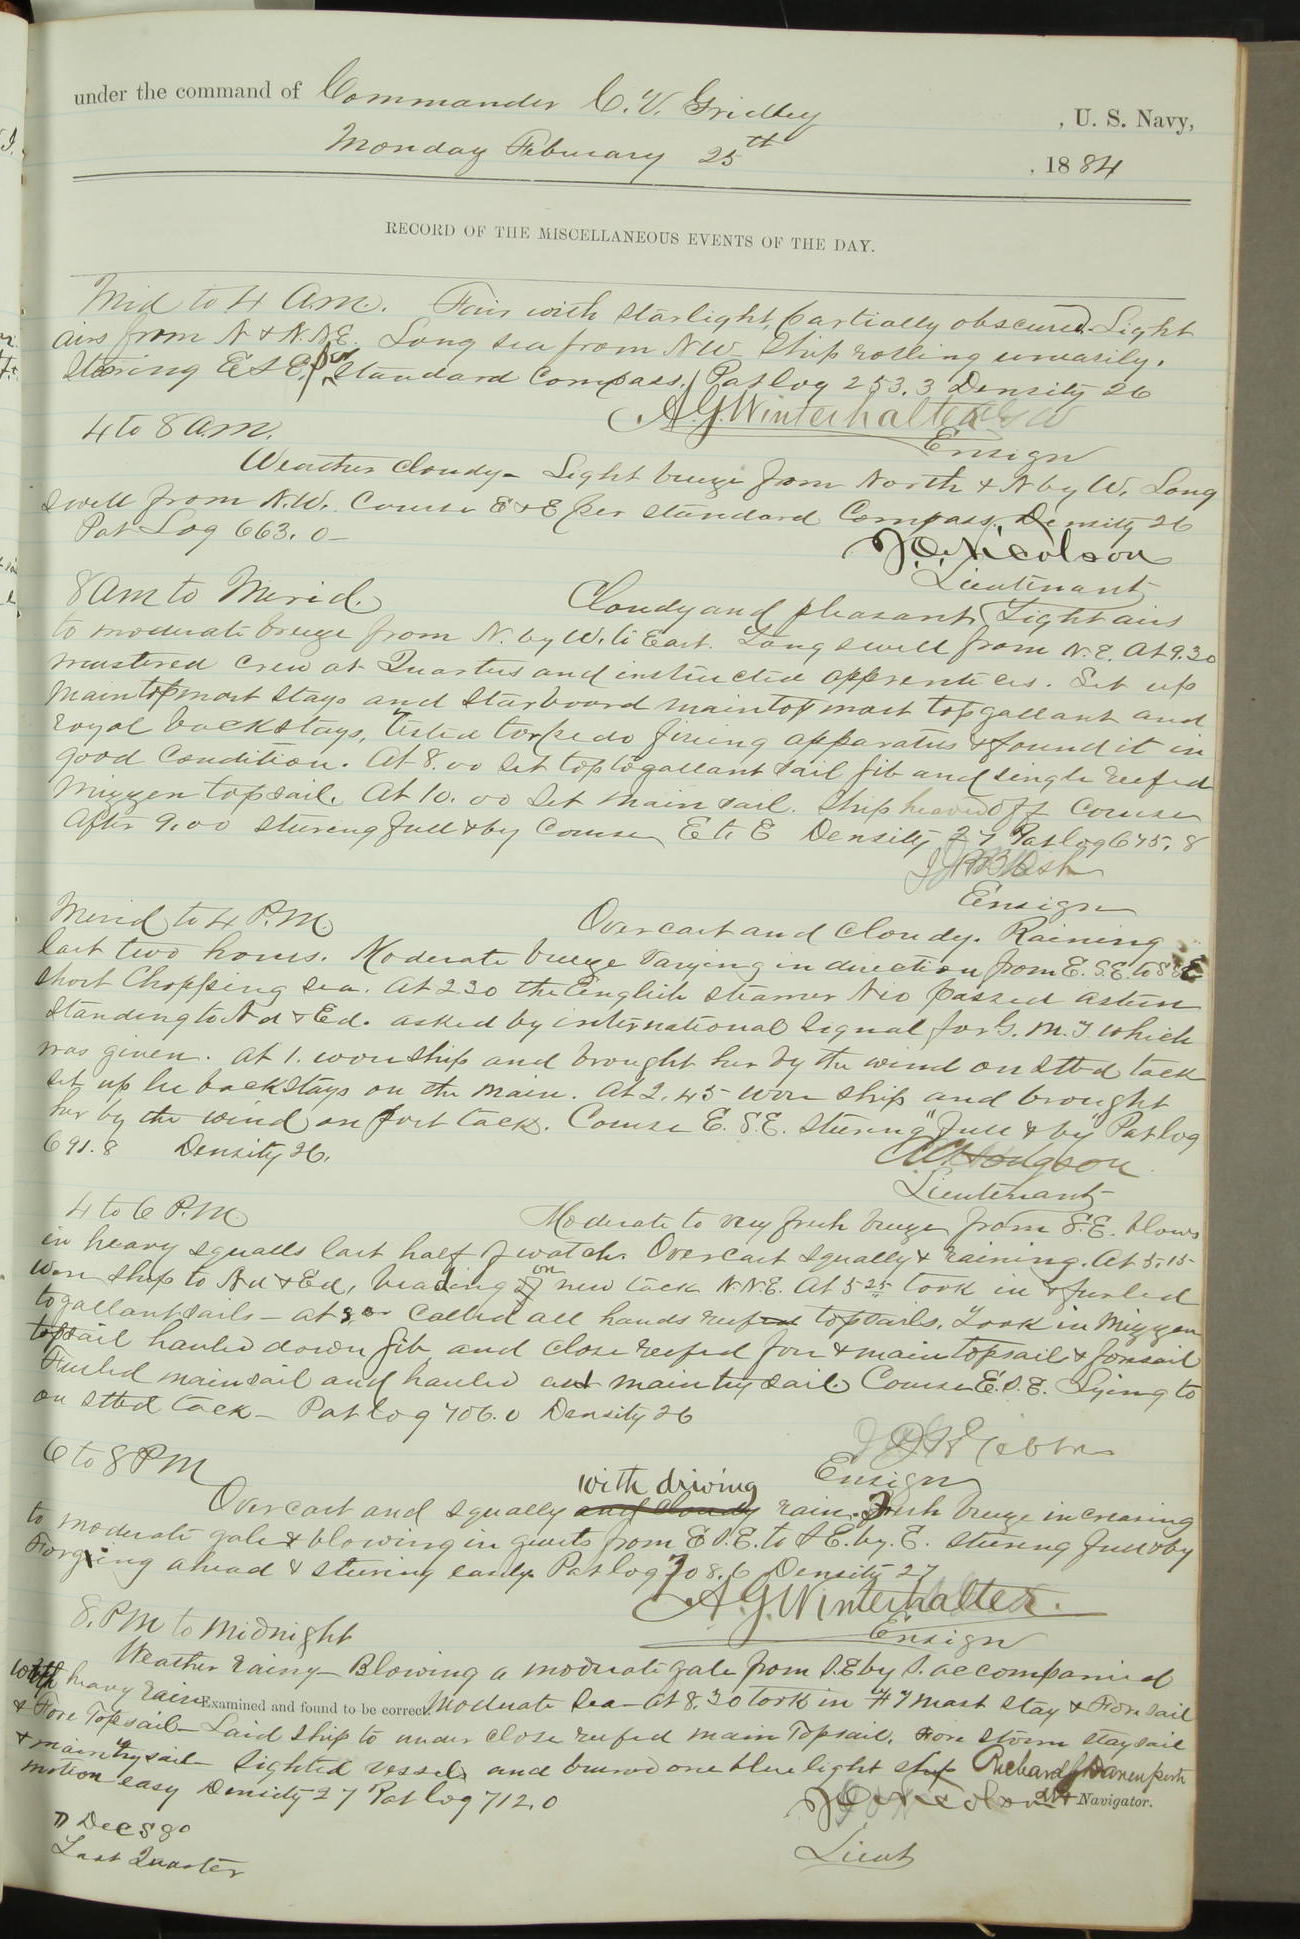 under the command of Commander C. V. Gridley , U. S. Navy,
Monday February 25th , 1884
RECORD OF THE MISCELLANEOUS EVENTS OF THE DAY.
Mid to 4 A.M. Fair with starlight, partially obscured. Light
airs from N & N.N.E. Long sea from NW Ship rolling uneasily.
Steering E & E, per Standard Compass. Pat log 253.3 Density 26
A. G. Winterhalter
Ensign
4 to 8 a.m.
Weather cloudy - Light breeze from North & N by W. Long
swell from N.W. Course E & E per standard Compass. Density 26
Pat Log 663.0 -
Nicolson
Lieutenant
8 Am to Merid.
Cloudy and pleasant, Light airs
to moderate breeze from N. by W. to East. Long swell from N.E. At 9.30
mustered crew at Quarters and instructed apprentices. Set up
Maintopmast stays and starboard maintopmast topgallant and
royal backstays, tested torpedo firing apparatus & found it in
good condition. At 8.00 set top togallant sail jib and single reefed
Mizzen topsail. At 10.00 set main sail. Ship headed off course
After 9.00 steering full & by course E to E Density 27 Pat log 675.8
Ensign
Merid to 4 P.M.
Overcast and cloudy. Raining
last two hours. Moderate breeze varying in direction from E.S.E. to SSE
short Chopping sea. At 2 30 the English steamer Nio passed astern
standing to Nd & Ed. asked by international signal for G.M.T which
was given. At 1. wore ship and brought her by the wind on stbd tack
set up lee backstays on the main. At 2.45 wore ship and brought
her by the wind on port tack. Course E.S.E. steering "Full & by" Pat log
691.8 Density 26.
Hodgson
Lieutenant
4 to 6 P.M
Moderate to very fresh breeze from S.E. blows
in heavy squalls last half of watch. Overcast squally & raining. At 5.15
wore ship to Nd & Ed, heading on new tack N.N.E. At 5 25 took in & furled
togallantsails - at called all hands reefed topsails. Took in Mizzen
topsail hauled down jib and close reefed fore & main topsails & foresail
Furled mainsail and hauled out main trysail. Course E.S.E. Lying to
on stbd tack - Pat log 706.0 Density 26
Ensign
6 to 8 PM
Overcast and squally and cloudy with driving rain. Fresh breeze increasing
to moderate gale & blowing in gusts from E S.E. to S E. by. E. steering full & by
Forging ahead & steering easily. Pat log 708.6 Density 27
A. G. Winterhalter.
Ensign
8. PM to Midnight
Weather rainy - Blowing a moderate gale from S.E by S. accompanied
with heavy rain. Moderate Sea - At 8.30 took in mast stay & Fore sail
Examined and found to be correct.
& Fore Topsail - Laid ship to under close reefed main Topsail, Fore storm staysail
& main trysail - Sighted vessel and burned one blue light ship
motion easy Density 27 Pat log 712.0
Richard G Davenport
Navigator.
Nicolson
Lieut
Last Quarter